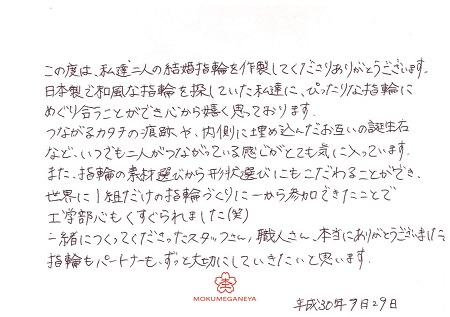 この度は、私達二人の結婚指輪を作製してくださりありがとうございます。
日本製で和風な指輪を探していた私達に、ぴったりな指輪に
めぐり合うことができ心から嬉しく思っております。
つながるカタチの痕跡や、内側に埋め込んだお互いの誕生石
など、いつでも二人がつながっている感じがとても気に入っています。
また、指輪の素材選びから形状選びにもこだわることができ、
世界に1組だけの指輪づくりに一から参加できたことで
工学部心もくすぐられました(笑)
一緒につくってくださったスタッフさん、職人さん、本当にありがとうございました。
指輪もパートナーも、ずっと大切にしていきたいと思います。
MOKUMEGANEYA
平成30年7月29日